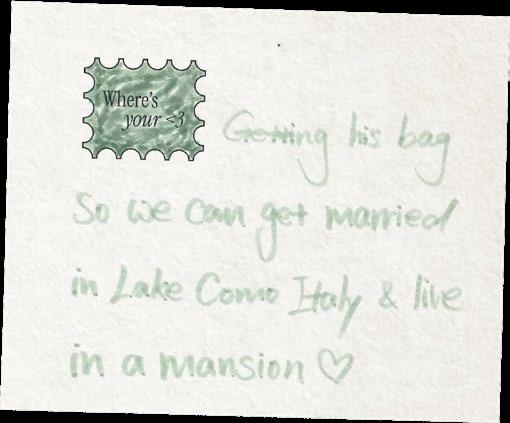 Where's
your <3
Getting his bag
So we can get married
in Lake Como Italy & live
in a mansion ♡